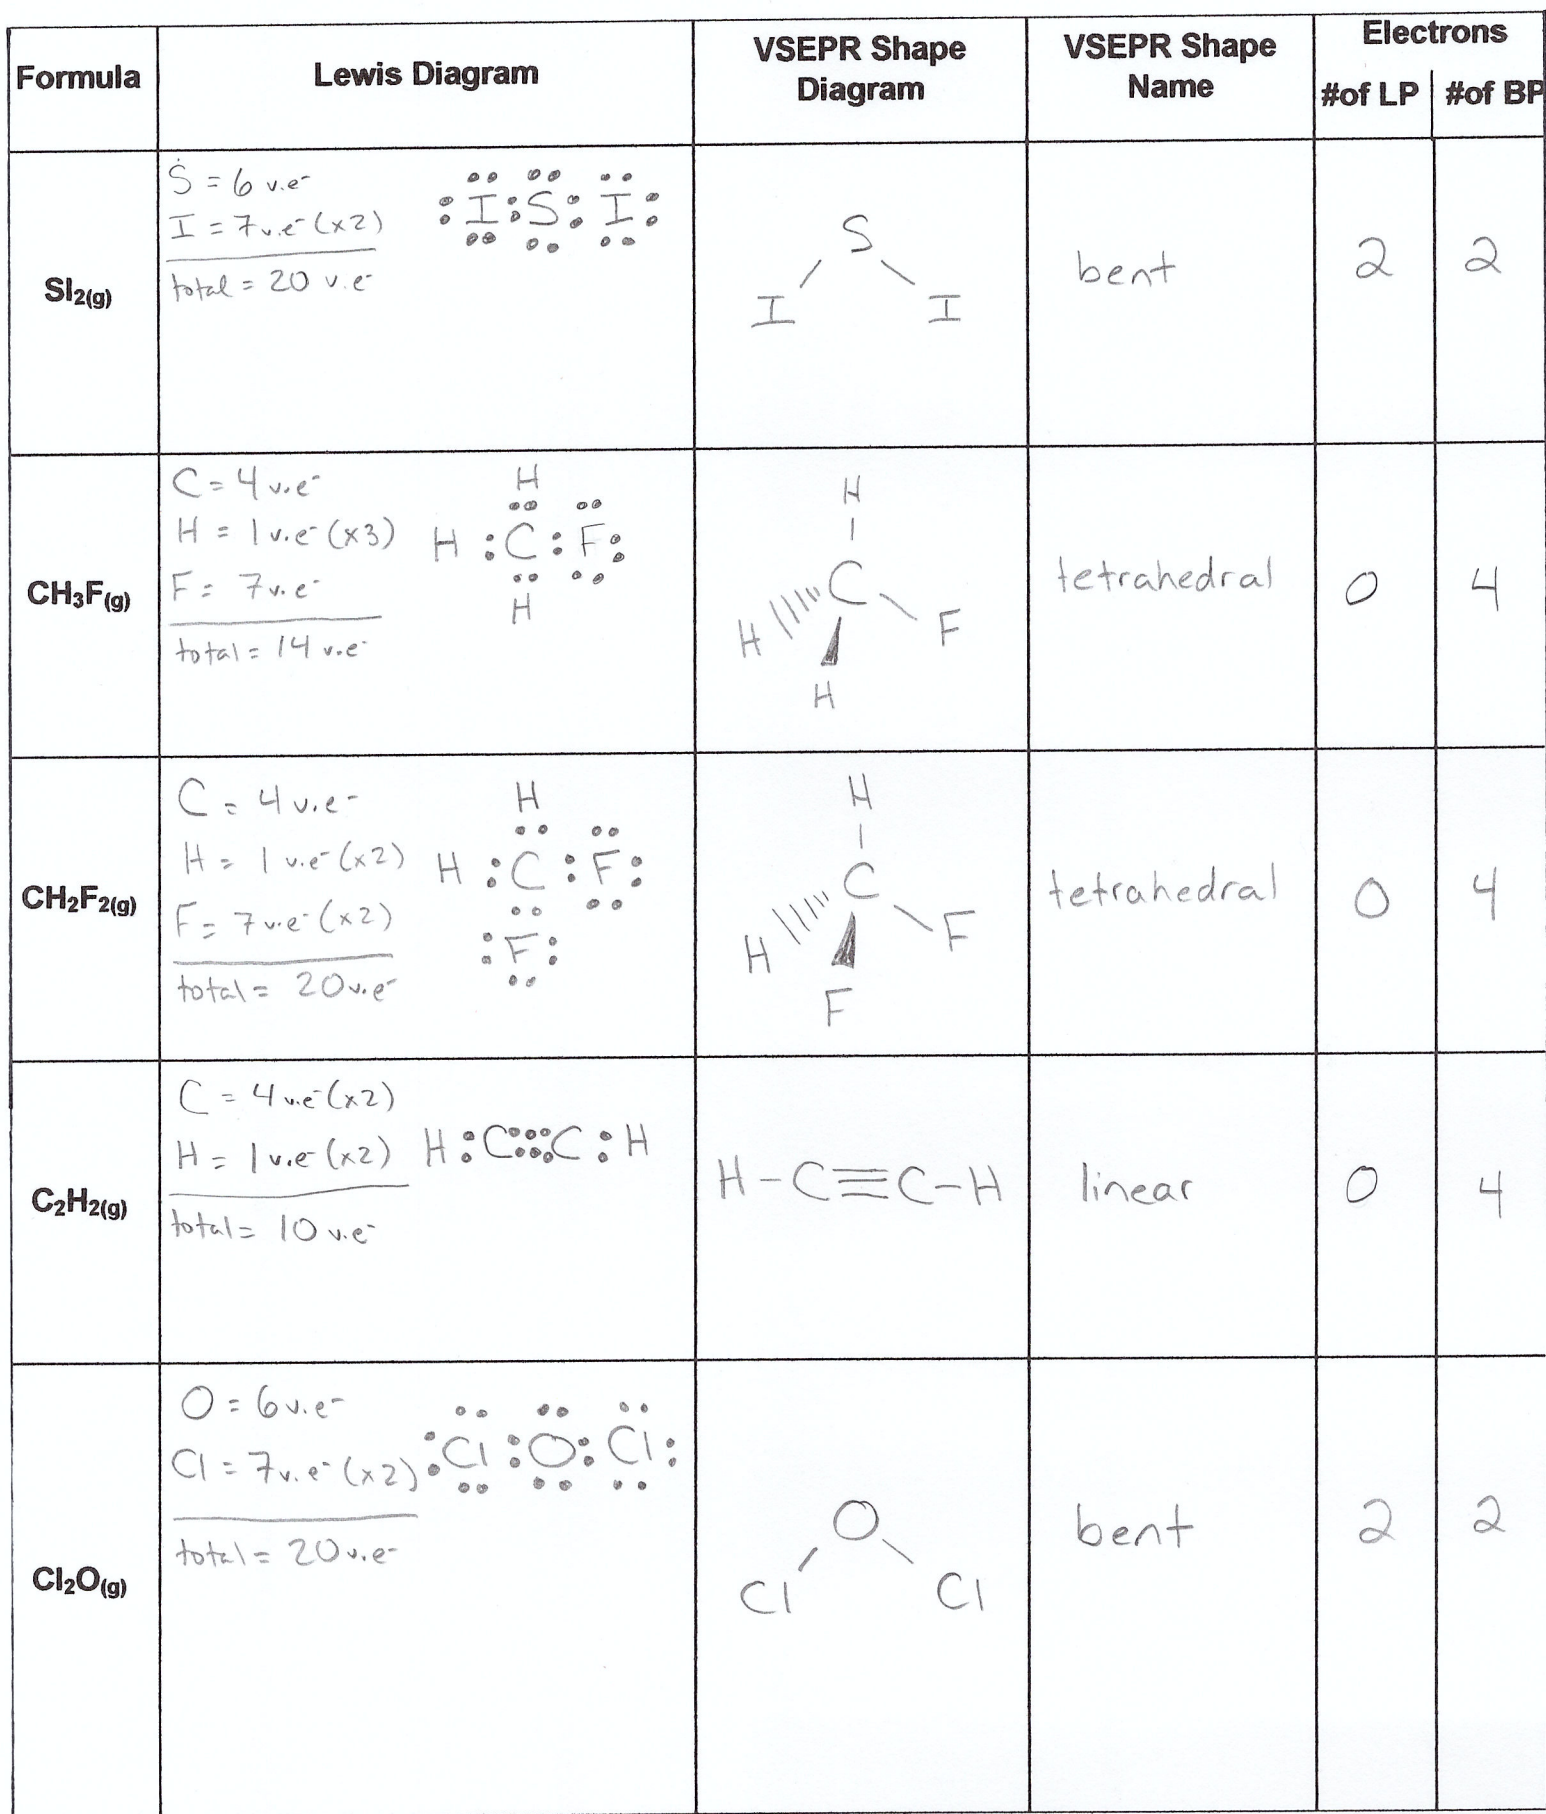 Formula Lewis Diagram VSEPR Shape Diagram VSEPR Shape Name Electrons
#of LP #of BP
SI₂(g)
S = 6 v.e⁻
I = 7 v.e⁻ (x2)
total = 20 v.e⁻
I S I
S
I I
bent
2 2
CH₃F(g)
C = 4 v.e⁻
H = 1 v.e⁻ (x3)
F = 7 v.e⁻
total = 14 v.e⁻
H
H : C : F :
H
H
C
H F
H
tetrahedral
0 4
CH₂F₂(g)
C = 4 v.e⁻
H = 1 v.e⁻ (x2)
F = 7 v.e⁻ (x2)
total = 20 v.e⁻
H
H : C : F :
: F :
H
C
H F
F
tetrahedral
0 4
C₂H₂(g)
C = 4 v.e⁻ (x2)
H = 1 v.e⁻ (x2)
total = 10 v.e⁻
H : C ::: C : H
H-C≡C-H
linear
0 4
Cl₂O(g)
O = 6 v.e⁻
Cl = 7 v.e⁻ (x2)
total = 20 v.e⁻
: Cl : O : Cl :
O
Cl Cl
bent
2 2